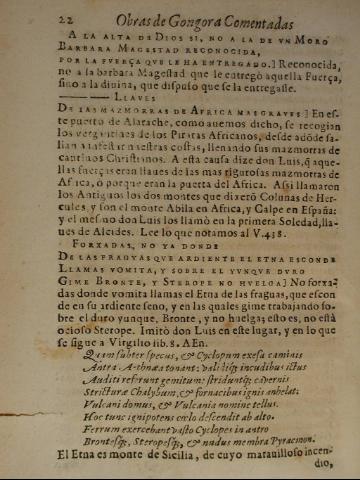 22 Obras de Gongora Comentadas
A LA ALTA DE DIOS SI, NO A LA DE VN MORO
BARBARA MAGESTAD RECONOCIDA,
POR LA FUERÇA QUE LE HA ENTREGADO.] Reconocida,
no a la barbara Magestad que le entregò aquella Fuerça,
sino a la diuina, que dispuso que se la entregasse.
LLAVES
DE LAS MAZMORRAS DE AFRICA MAS GRAVES] En es-
te puerto de Alarache, como auemos dicho, se recogian
los vergantines de los Piratas Africanos, desde adòde sa-
lian a infestar nuestras costas, llenando sus mazmorras de
cautiuos Christianos. A esta causa dize don Luis, q̃ aque-
llas fuerças eran llaues de las mas rigurosas mazmorras de
Africa, ò porque eran la puerta del Africa. Assi llamaron
los Antiguos los dos montes que dixerõ Colunas de Her-
cules, y son el monte Abila en Africa, y Calpe en España:
y el mesmo don Luis los llamò en la primera Soledad, lla-
ues de Alcides. Lee lo que notamos al V.438.
FORXADAS, NO YA DONDE
DE LAS FRAGUAS QUE ARDIENTE EL ETNA ESCONDE
LLAMAS VOMITA, Y SOBRE EL YUNQUE DURO
GIME BRONTE, Y STEROPE NO HUELGA] No forxa-
das donde vomita llamas el Etna de las fraguas, que escon
de en su ardiente seno, y en las quales gime trabajando so-
bre el duro yunque, Bronte, y no huelga; esto es, no està
ocioso Sterope. Imitò don Luis en este lugar, y en lo que
se sigue a Virgilio lib. 8. AEn.
Quam subter specus, & Cyclopum exesa caminis
Antra AEthnæa tonant: validiq; incudibus ictus
Auditi referunt gemitum: striduntq; cavernis
Stricturæ Chalybum, & fornacibus ignis anhelat:
Vulcani domus, & Vulcania nomine tellus.
Hoc tunc ignipotens cælo descendit ab alto.
Ferrum exercebant vasto Cyclopes in antro
Brontesq;, Steropesq;, & nudus membra Pyracmon.
El Etna es monte de Sicilia, de cuyo marauilloso incen-
dio,